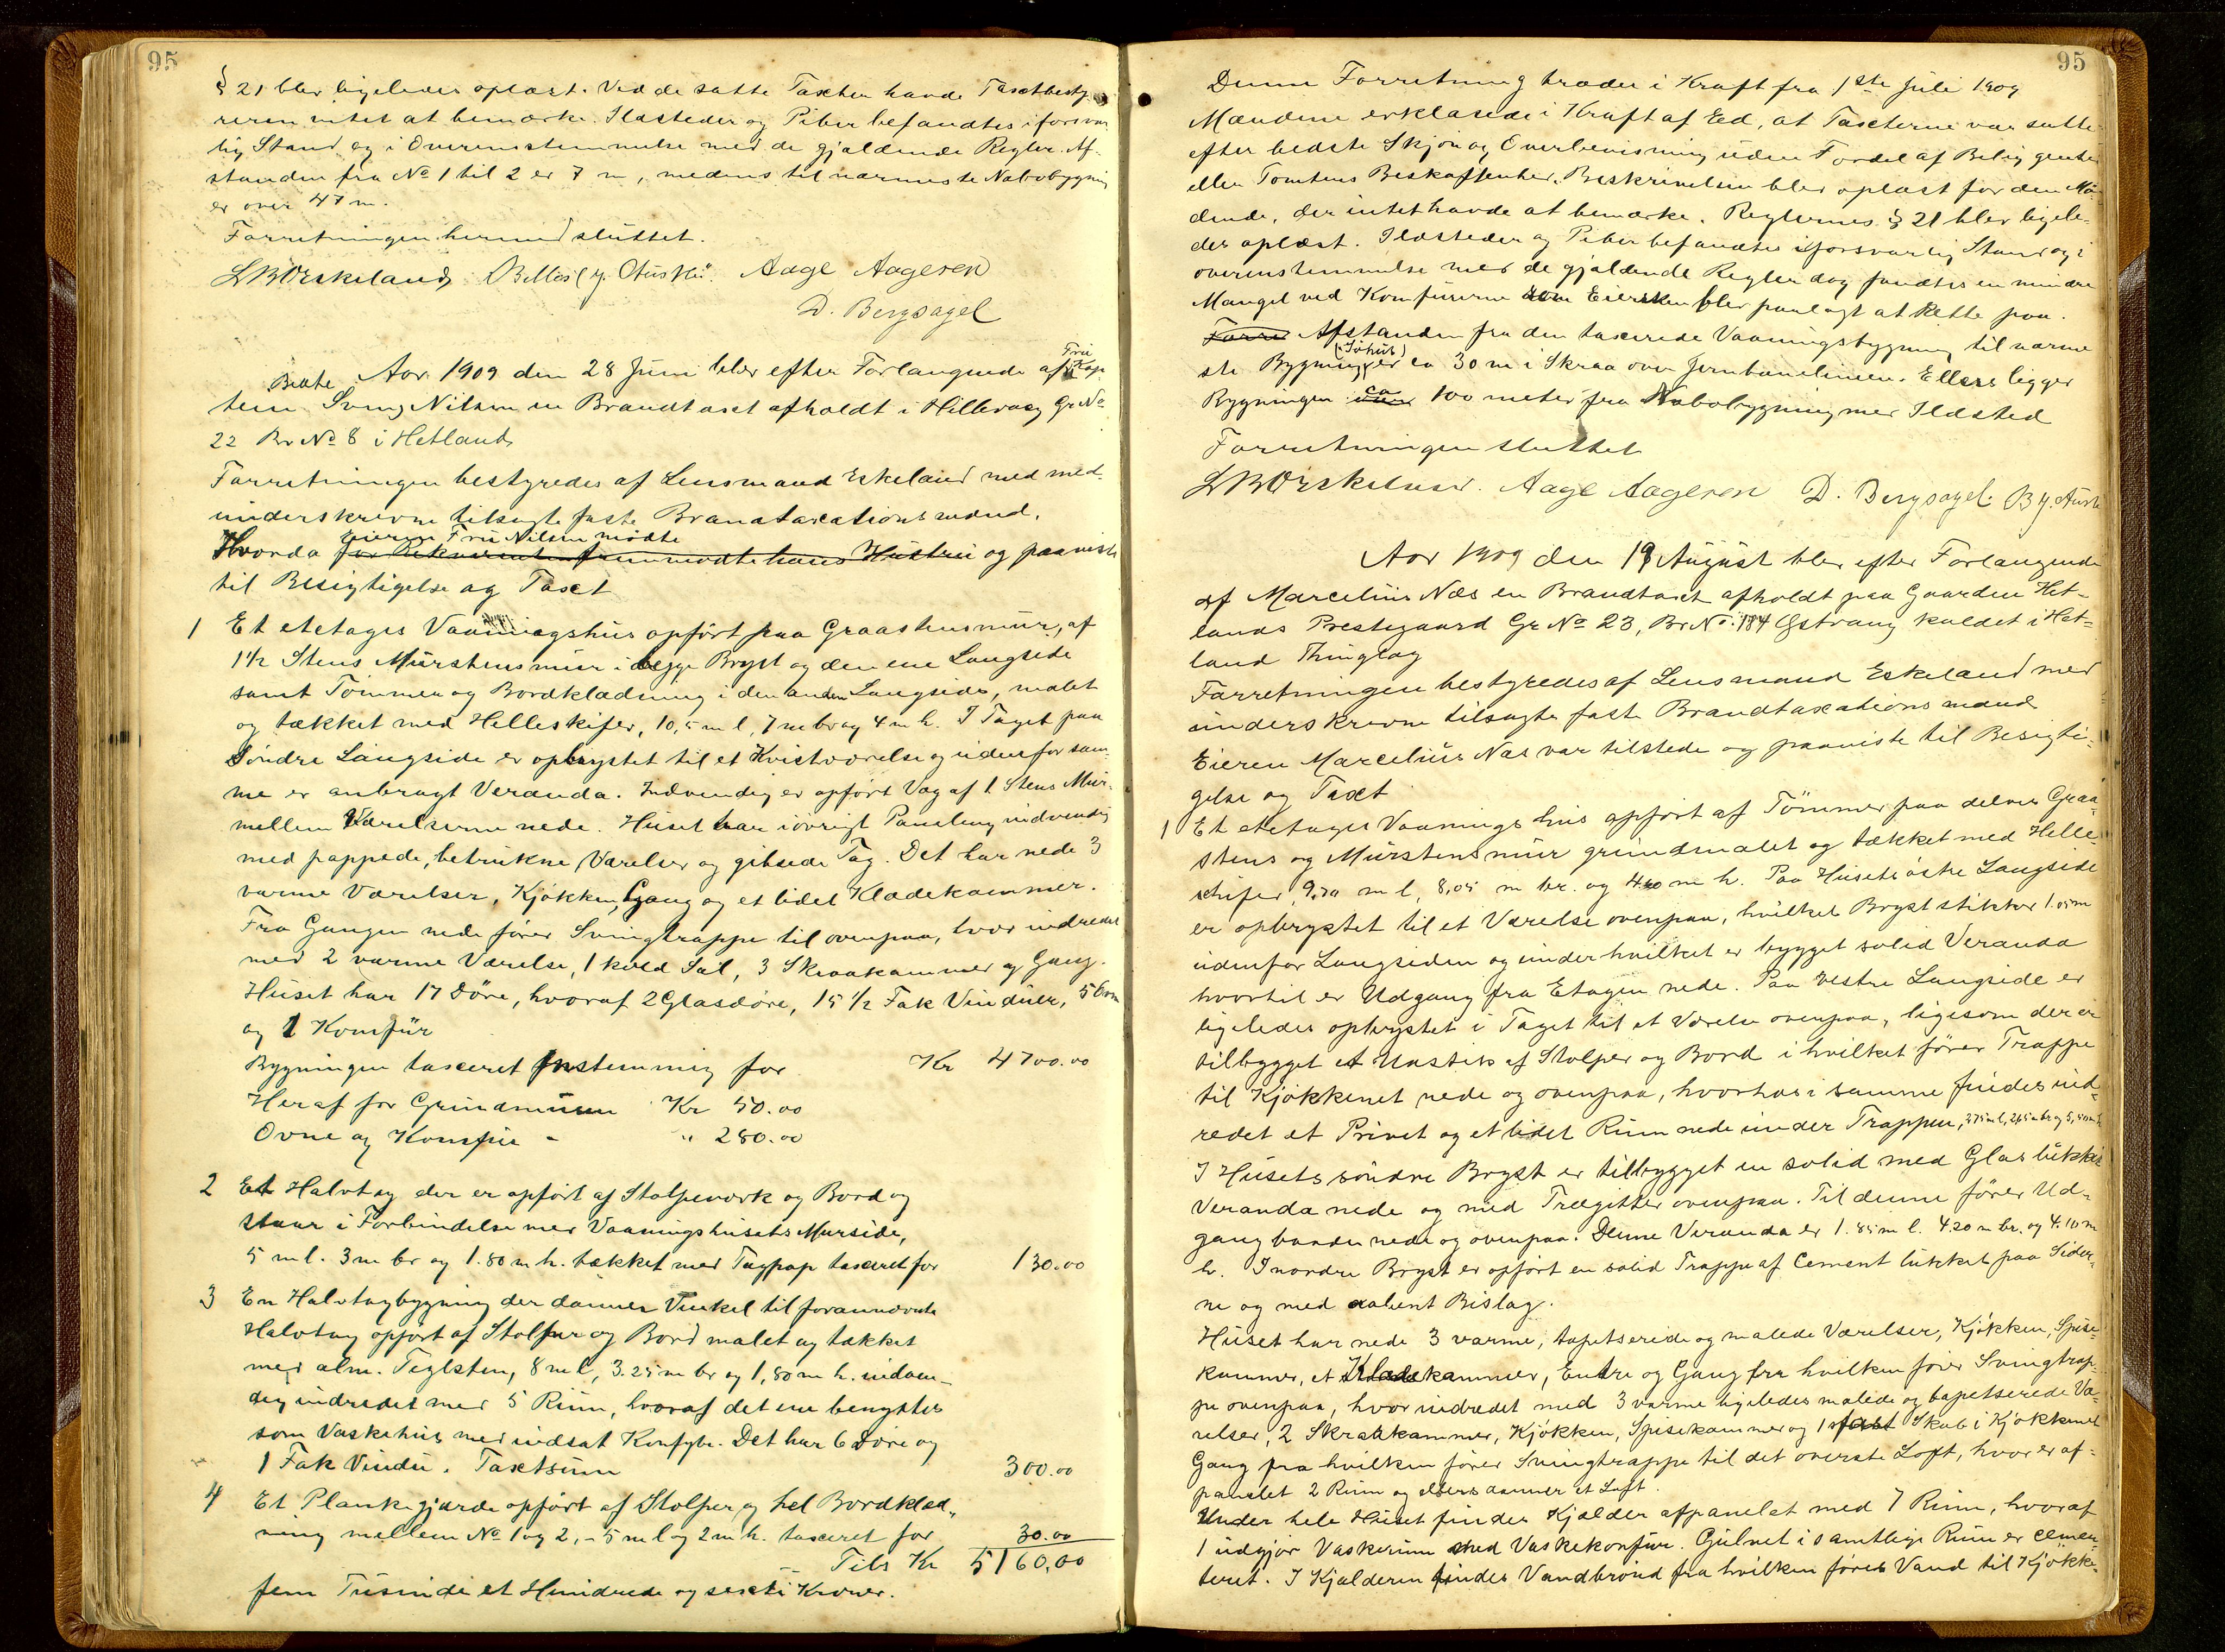 95
§ 21 blev ligeledes oplæst. Ved de satte Taxter havde Taxtbesty-
reren intet at bemærke. Ildsteder og Piber befandtes i forsvar
lig Stand og i Overensstemmelse med de gjældende Regler. Af-
standen fra No 1 til 2 er 7 m, medens til nærmeste Nabobygning
er over 47 m.
Forretningen hermed sluttet.
LBOEskeland Aage Aageren
D. Bergsagel
Aar 1909 den 28 Juni blev efter Forlangende af Fru Kap
tein Nilsen en Brandtaxt afholdt i Hillevaag Gr No
22 Br No 8 i Hetland
Forretningen bestyredes af Lensmand Eskeland med med-
underskrevne tilsagte faste Brandtaxationsmænd.
Eieren Fru Nilsen mødte
Hvorda for Rekvirenten fremmødte hans Hustru og paaviste
til Besigtigelse og Taxt
1 Et etetages Vaaningshus opført paa Graastensmur, af
1 1/2 Stens Murstensmur i begge Bryst og den ene Langside
samt Tømmer og Bordklædning i den anden Langside, malet
og tækket med Helleskifer, 10,5 m l, 7 m br og 4 m h. I Taget paa
Søndre Langside er opbrystet til et Kvistværelse og udenfor sam-
me er anbragt Veranda. Indvendig er opført Væg af 1 Stens Mur
mellem Værelserne nede. Huset har iøvrigt Paneling indvendig
med pappede, betrukne Værelser og gibsede Tag. Det har nede 3
varme Værelser, Kjøkken, Gang og et lidet Klædekammer.
Fra Gangen nede fører Svingtrappe til ovenpaa, hvor indredet
med 2 varme Værelse, 1 kold Sal, 3 Skraakammer og Gang.
Huset har 17 Døre, hvoraf 2 Glasdøre, 15 1/2 Fak Vinduer, 5 Ovne
og 1 Komfur
Bygningen taxeret Enstemmig for Kr 4700.00
Heraf for Grundmuren Kr 50.00
Ovne og Komfur - " 280.00
2 Et Halvtag der er opført af Stolpeværk og Bord og
staar i Forbindelse med Vaaningshusets Murside,
5 m l. 3 m br og 1.80 m h. tækket med Tagpap taxeret for 130.00
3 En Halvtagbygning der danner Vinkel til forannævnte
Halvtag opført af Stolper og Bord malet og tækket
med alm. Teglsten, 8 m l, 3.25 m br og 1,80 m h. indven-
dig indredet med 5 Rum, hvoraf det ene benyttes
som Vaskehus med indsat Konfyr. Det har 6 Døre og
1 Fak Vindu. Taxtsum 300.00
4 Et Plankegjærde opført af Stolper og hel Bordklæd-
ning mellem No 1 og 2, - 5 m l og 2 m h. taxeret for 30.00
Tils Kr 5160,00
fem Tusinde et Hundrede og sexti Kroner.
95
Denne Forretning træder i Kraft fra 1ste Juli 1909
Mændene erklærede i Kraft af Eed, at Taxterne var satte
efter bedste Skjøn og Overbevisning uden Fordel af Beliggenhed
eller Tomtens Beskaffenhed. Beskrivelsen blev oplæst for den Mø-
dende, der intet havde at bemærke. Reglernes § 21 blev ligele-
des oplæst. Ildsteder og Piber befandtes i forsvarlig Stand og i
overensstemmelse med de gjældende Regler dog fandtes en mindre
Mangel ved Komfurerne som Eiersken blev paalagt at Rette paa.
Forre Afstanden fra den taxerede Vaaningsbygning til nærme
ste Bygning (Søhus) er ca 30 m i Skraa over Jernbanelinien. Ellers ligger
Bygningen ca 100 meter fra Nabobygning med Ildsted
Forretningen sluttet
LBOEskeland. Aage Aageren D. Bergsagel.
Aar 1909 den 19 August blev efter Forlangende
af Marcelius Næs en Brandtaxt afholdt paa Gaarden Het-
lands Prestegaard Gr No 23, Br No. 184 kaldet i Het-
land Thinglag
Forretningen bestyredes af Lensmand Eskeland med
underskrevne tilsagte faste Brandtaxationsmænd
Eieren Marcelius Næs var tilstede og paaviste til Besigti-
gelse og Taxt
1 Et etetages Vaaningshus opført af Tømmer paa delvis Graa-
stens og Murstensmur grundmalet og tækket med Helle-
skifer, 9.70 m l, 8,05 m br. og 4.20 m h. Paa Husets østre Langside
er opbrystet til et Værelse ovenpaa, hvilket Bryst stikker 1.05 m
udenfor Langsiden og under hvilket er bygget solid Veranda
hvortil er Udgang fra Etagen nede. Paa vestre Langside er
ligeledes opbrystet i Taget til et Værelse ovenpaa, ligesom der er
tilbygget et Utstik af Stolper og Bord i hvilket fører Trappe
til Kjøkkenet nede og ovenpaa, hvorhos i samme findes ind-
redet et Privet og et lidet Rum nede under Trappen,
I Husets søndre Bryst er tilbygget en solid med Glas lukket
Veranda nede og med Trægitter ovenpaa. Til denne fører Ud-
gang baade nede og ovenpaa. Denne Veranda er 1.85 m l. 4.20 m br. og 4.10 m
h. I nordre Bryst er opført en solid Trappe af Cement lukket paa Sider-
ne og med aabent Bislag.
Huset har nede 3 varme, tapetserede og malede Værelser, Kjøkken, Spise-
kammer, et Klædekammer, Entre og Gang fra hvilken fører Svingtrap-
pe ovenpaa, hvor indredet med 3 varme ligeledes malede og tapetserede Væ-
relser, 2 Skraakammer, Kjøkken, Spisekammer og 1 fast Skab i Kjøkkenet
Gang fra hvilken fører Svingtrappe til det øverste Loft, hvor er af-
panelet 2 Rum og ellers danner et Loft.
Under hele Huset findes Kjælder afpanelet med 7 Rum, hvoraf
1 udgjør Vaskerum med Vaskekonfur. Gulvet i samtlige Rum er cemen-
teret. I Kjælderen findes Vandbrønd fra hvilken føres Vand til Kjøkke-